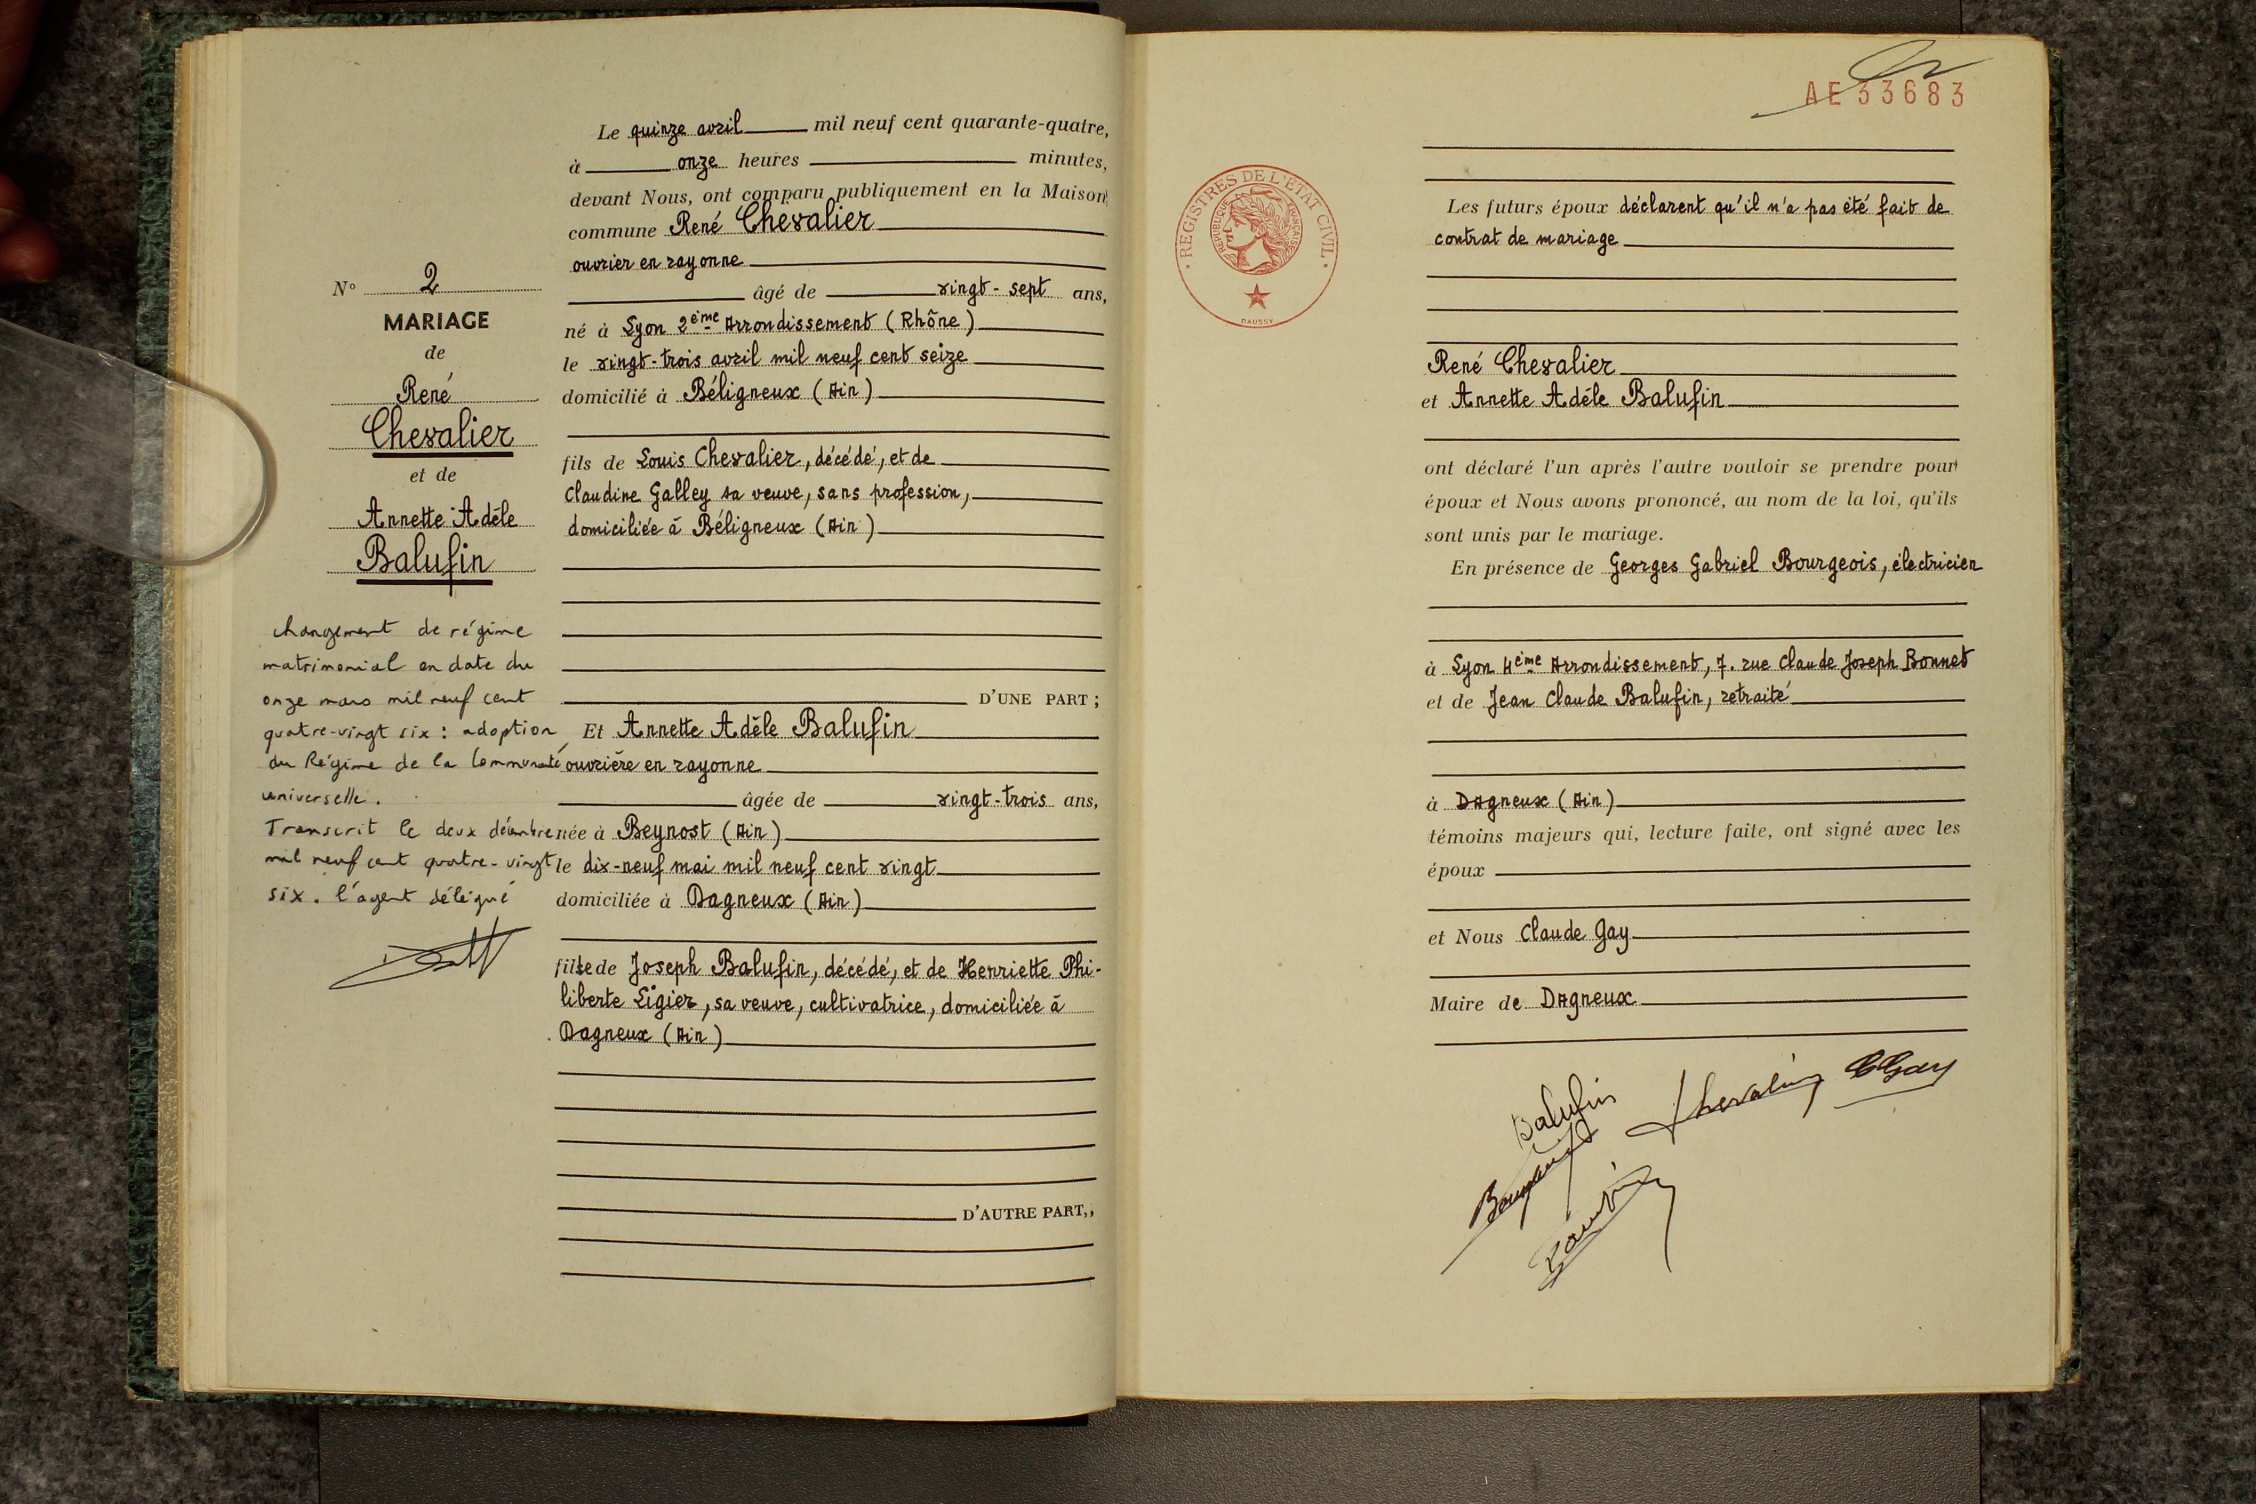 N° 2
MARIAGE
de
René
Chevalier
et de
Annette Adèle
Balufin
changement de régime
matrimonial en date du
onze mars mil neuf cent
quatre-vingt six : adoption
du Régime de la Communauté
universelle.
Transcrit le deux décembre
mil neuf cent quatre-vingt
six. l'agent délégué
Le quinze avril mil neuf cent quarante-quatre,
à onze heures minutes,
devant Nous, ont comparu publiquement en la Maison
commune René Chevalier
ouvrier en rayonne
âgé de vingt-sept ans,
né à Lyon 2ème Arrondissement (Rhône)
le vingt-trois avril mil neuf cent seize
domicilié à Béligneux (Ain)
fils de Louis Chevalier, décédé, et de
Claudine Galley sa veuve, sans profession,
domiciliée à Béligneux (Ain)
D'UNE PART ;
Et Annette Adèle Balufin
ouvrière en rayonne
âgée de vingt-trois ans,
née à Beynost (Ain)
le dix-neuf mai mil neuf cent vingt
domiciliée à Dagneux (Ain)
fille de Joseph Balufin, décédé, et de Henriette Phi-
liberte Ligier, sa veuve, cultivatrice, domiciliée à
Dagneux (Ain)
D'AUTRE PART,,
AE 33683
REGISTRES DE L'ETAT CIVIL
REPUBLIQUE FRANÇAISE
DAUSSY
Les futurs époux déclarent qu'il n'a pas été fait de
contrat de mariage
René Chevalier
et Annette Adèle Balufin
ont déclaré l'un après l'autre vouloir se prendre pour
époux et Nous avons prononcé, au nom de la loi, qu'ils
sont unis par le mariage.
En présence de Georges Gabriel Bourgeois, électricien
à Lyon 4ème Arrondissement, 7. rue Claude Joseph Bonnet
et de Jean Claude Balufin, retraité
à Dagneux (Ain)
témoins majeurs qui, lecture faite, ont signé avec les
époux
et Nous Claude Gay
Maire de Dagneux
Balufin
Chevalier
CGay
Bourgeois